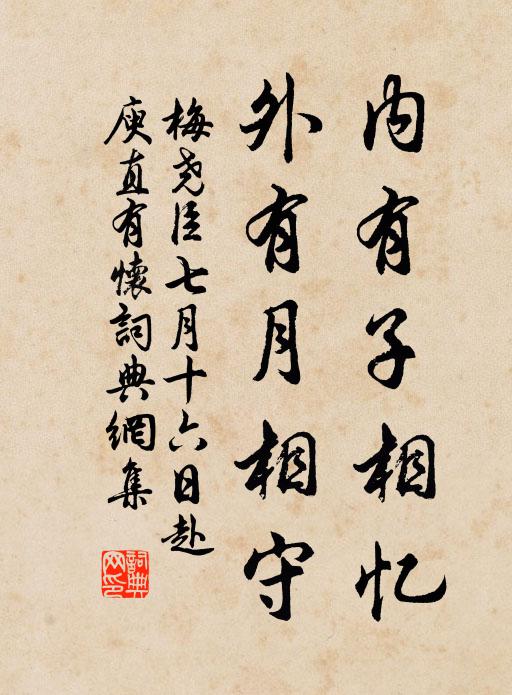 内有子相忆
外有月相守
梅尧臣七月十六日赴
庾直有懷詞典網集
詞典
网印